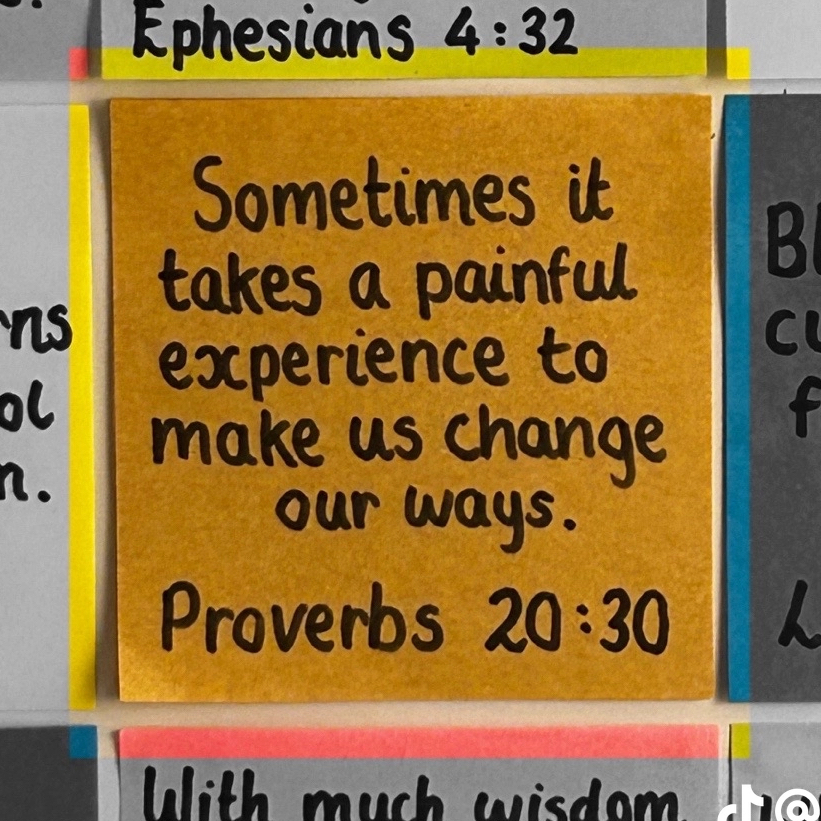 Ephesians 4:32
Sometimes it
takes a painful
experience to
make us change
our ways.
Proverbs 20:30
With much wisdom